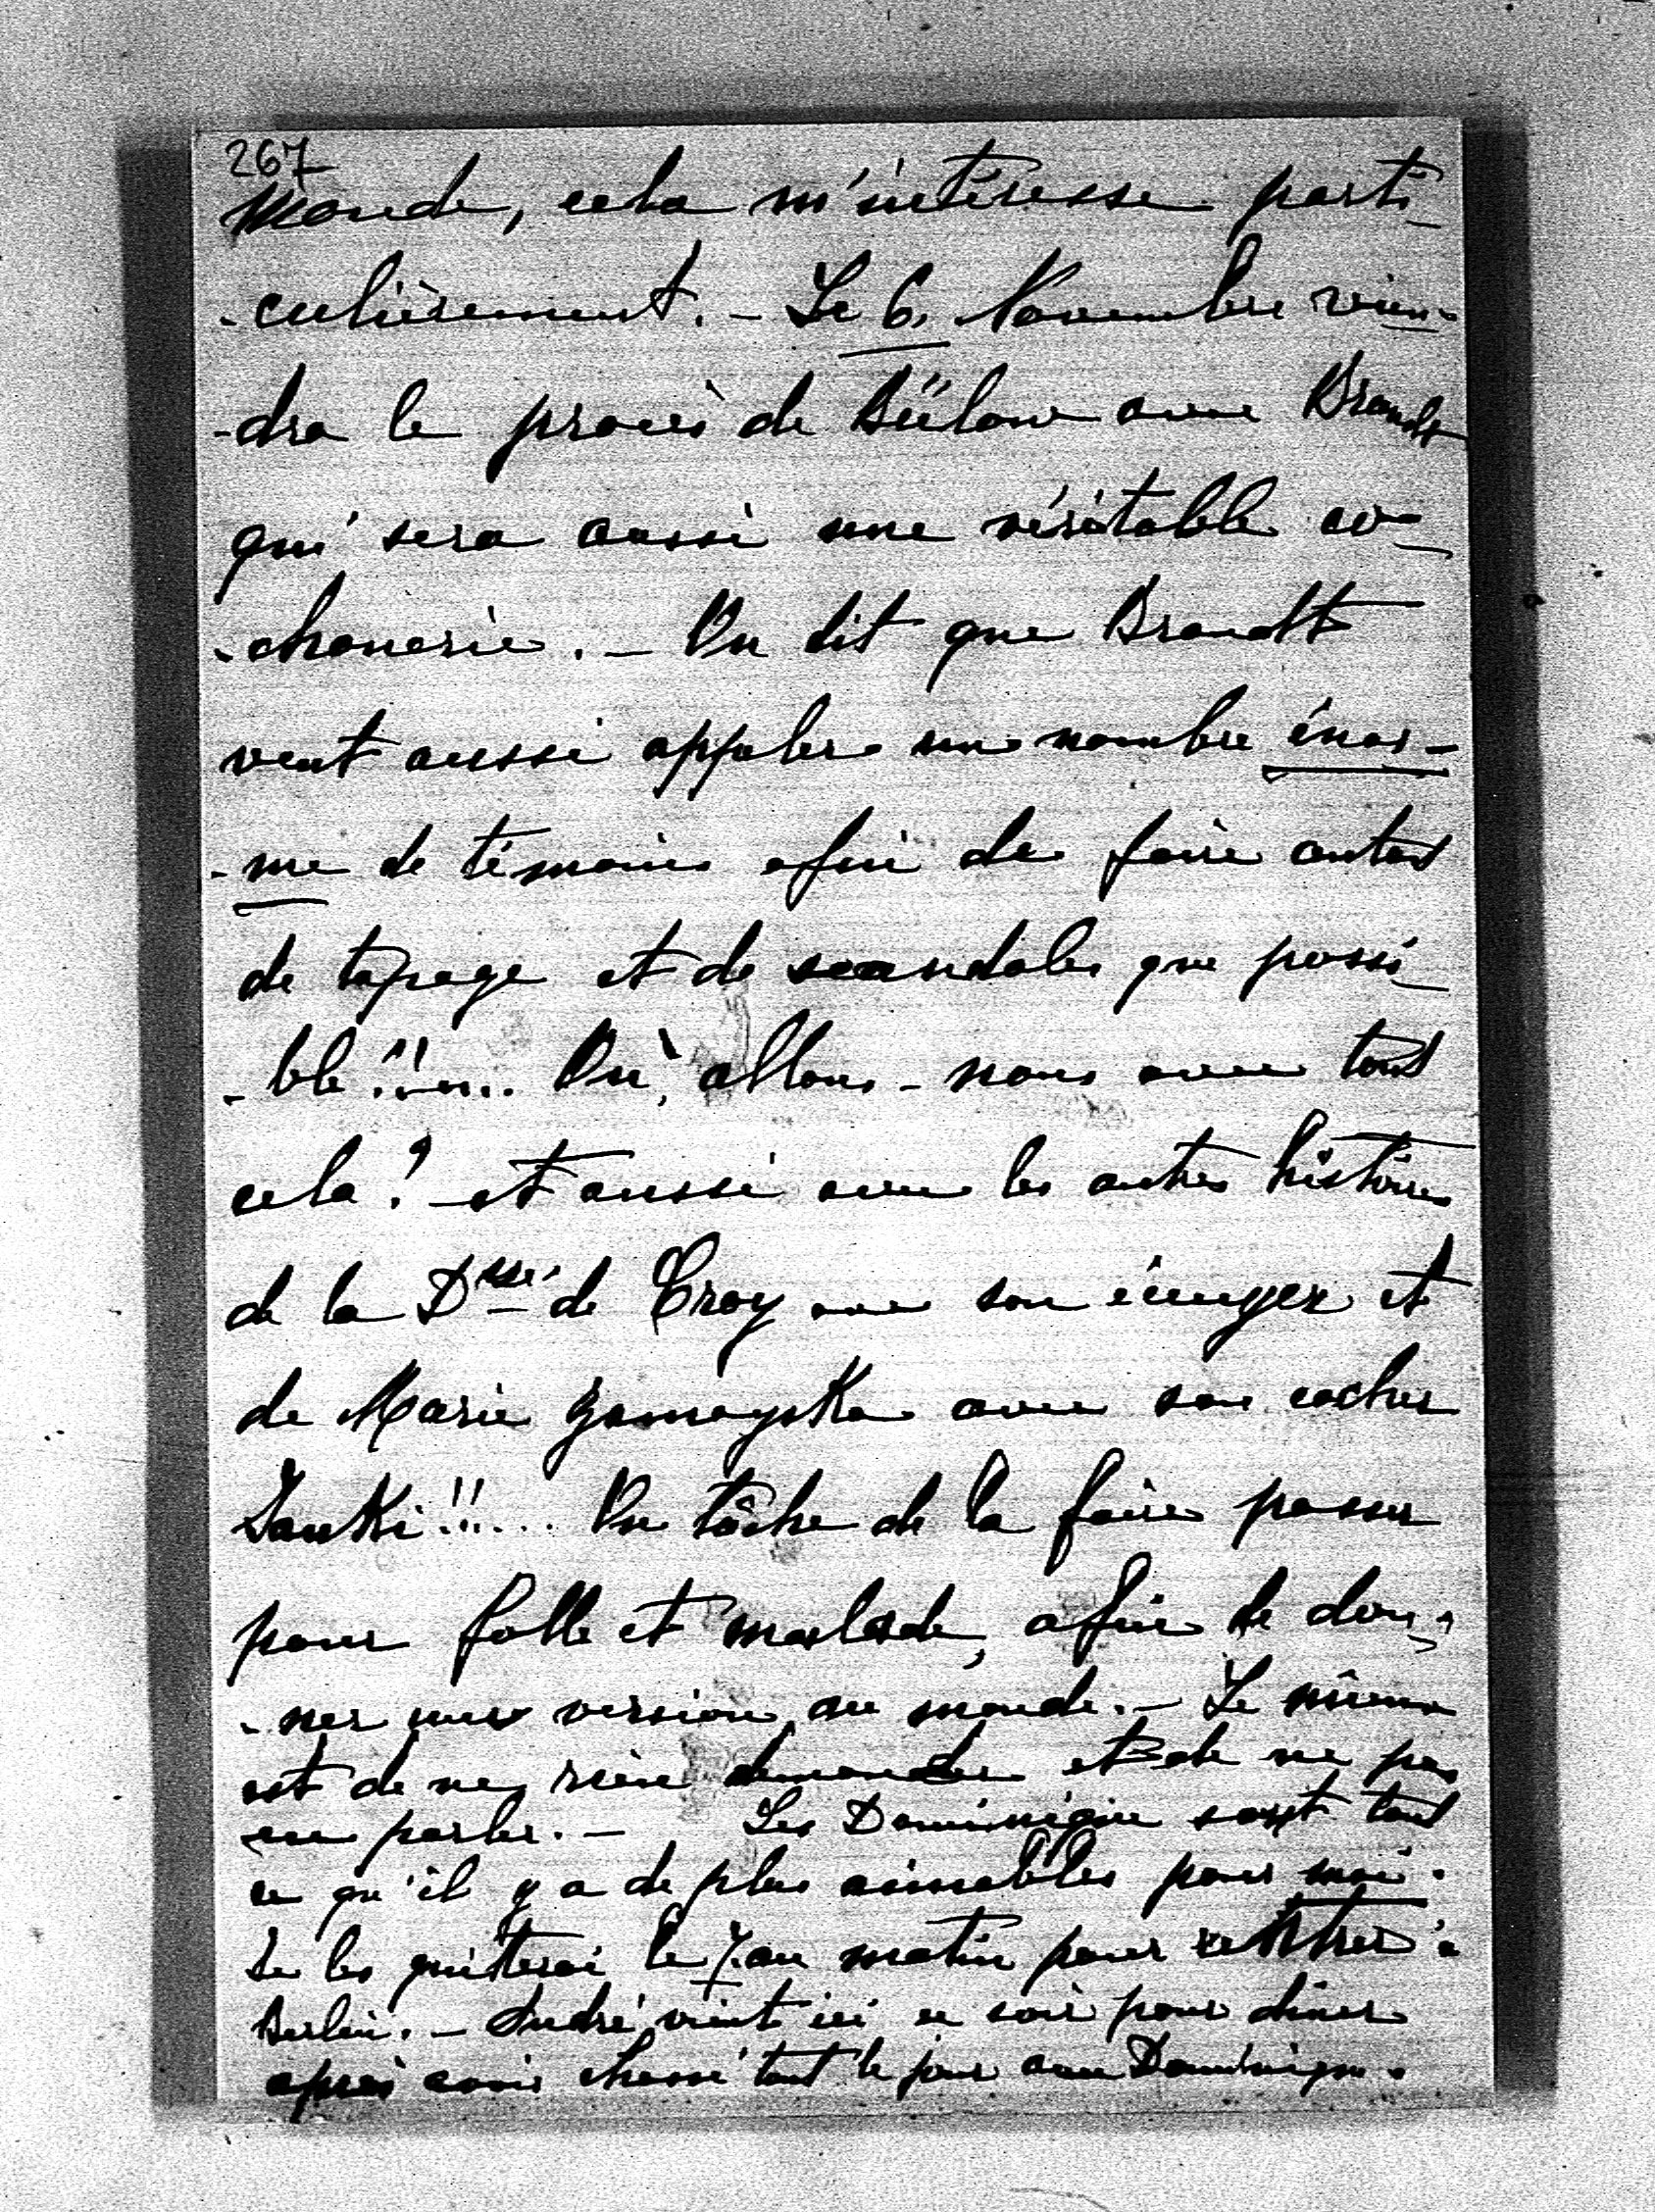 267
monde, cela m'intéresse parti-
-culièrement. - Le 6. Novembre vien-
-dra le procès de Bülow avec Brandt
qui sera aussi une véritable co-
-chonerie. - On dit que Brandt
veut aussi appeler un nombre énor-
-me de témoins afin de faire autant
de tapage et de scandales que possi-
-ble!!.... Où allons-nous avec tout
cela? et aussi avec les autres histoires
de la Dsse de Croy avec son écuyer et
de Marie Zamoyska avec son cocher
Janki!!... On tâche de la faire passer
pour folle et malade, afin de don-
-ner une version au monde. - Le mieux
est de ne rien demander et de ne pas
en parler. - Les Dominique sont tout
ce qu'il y a de plus aimables pour moi.
Je les quitterai le 7. au matin pour rentrer à
Berlin. - André vient ici ce soir pour dîner
après avoir chassé tout le jour avec Dominique.